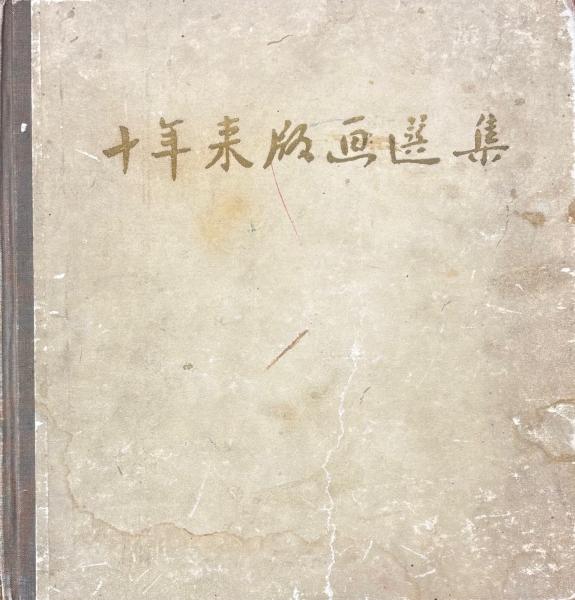 十年来版画選集